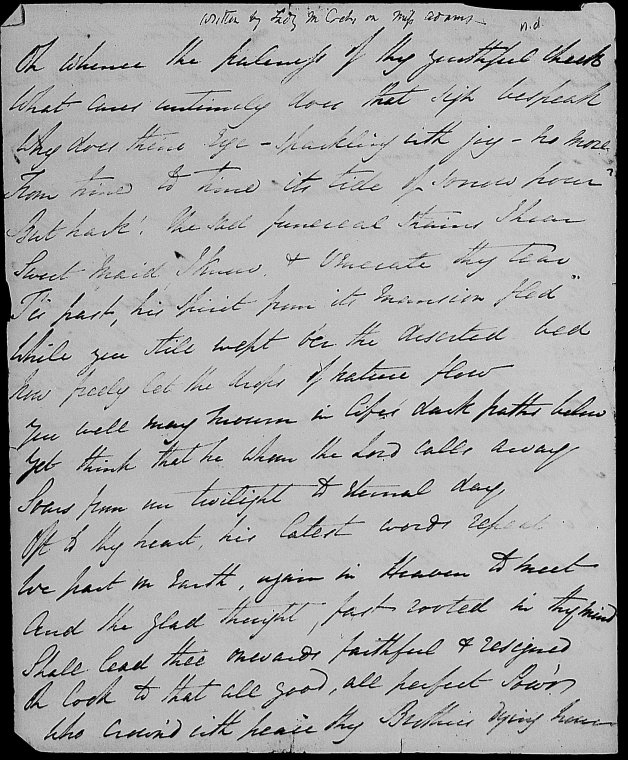 written by Lady on Miss Adams
n.d.
Oh whence the paleness of thy youthful cheek
What cares untimely does that sigh bespeak
Why does thine Eye - sparkling with joy - no more
From time to time its tide of sorrow pour
But hark! the sad funereal strains I hear
Sweet Maid, I know, & venerate thy tear
Tis past, his spirit from its mansion fled
While you still wept o'er the deserted bed
Now freely let the drops of nature flow
You well may mourn in life's dark paths below
Yet think that he whom the Lord calls away
Soars from our twilight to eternal day,
Oft to thy heart, his latest words repeat
We part on Earth, again in Heaven to meet
And the glad thought, fast rooted in thy mind
Shall lead thee onwards faithful & resigned
Oh look to that all good, all perfect Pow'r
Who crown'd with peace thy Brothers dying hour